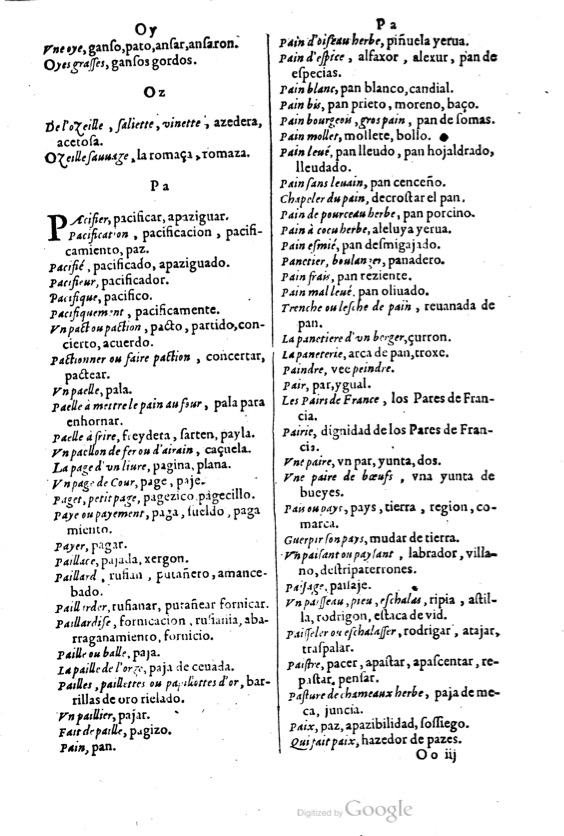 Oy
Vne oye, ganſo, pato, anſar, anſaron.
Oyes graſſes, ganſos gordos.
Oz
De l'oZeille, ſaliette, vinette, azedera,
acetoſa.
OZeille ſauuage, la romaça, romaza.
Pa
PAcifier, pacificar, apaziguar.
Pacification, pacificacion, pacifi-
camiento, paz.
Pacifié, pacificado, apaziguado.
Pacifieur, pacificador.
Pacifique, pacifico.
Pacifiquement, pacificamente.
Vn pact ou paction, pacto, partido, con-
cierto, acuerdo.
Pactionner ou faire paction, concertar,
pactear.
Vn paelle, pala.
Paelle à mettre le pain au four, pala para
enhornar.
Paelle à frire, freydera, ſarten, payla.
Vn paellon de fer ou d'airain, caçuela.
La page d'vn liure, pagina, plana.
Vn page de Cour, page, paje.
Paget, petit page, pagezico pagecillo.
Paye ou payement, paga, ſueldo, paga
miento.
Payer, pagar.
Paillace, pajada, xergon.
Paillard, rufian, putañero, amance-
bado.
Paillarder, rufianar, putañear fornicar.
Paillardiſe, fornicacion, rufiania, aba-
rraganamiento, fornicio.
Paille ou balle, paja.
La paille de l'orge, paja de ceuada.
Pailles, paillettes ou papillottes d'or, bar-
rillas de oro rielado.
Vn paillier, pajar.
Fait de paille, pagizo.
Pain, pan.
Pa
Pain d'oiſeau herbe, piñuela yerua.
Pain d'eſpice, alfaxor, alexur, pan de
eſpecias.
Pain blanc, pan blanco, candial.
Pain bis, pan prieto, moreno, baço.
Pain bourgeois, gros pain, pan de ſomas.
Pain mollet, mollete, bollo.
Pain leué, pan lleudo, pan hojaldrado,
lleudado.
Pain ſans leuain, pan cenceño.
Chapeler du pain, decroſtar el pan.
Pain de pourceau herbe, pan porcino.
Pain à cocu herbe, aleluya yerua.
Pain eſmié, pan deſmigajado.
Panetier, boulanger, panadero.
Pain frais, pan reziente.
Pain mal leué, pan oliuado.
Trenche ou leſche de pain, reuanada de
pan.
La panetiere d'vn berger, çurron.
La paneterie, arca de pan, troxe.
Paindre, vee peindre.
Pair, par, ygual.
Les Pairs de France, los Pares de Fran-
cia.
Pairie, dignidad de los Pares de Fran-
cia.
Vne paire, vn par, yunta, dos.
Vne paire de bœufs, vna yunta de
bueyes.
Pais ou pays, pays, tierra, region, co-
marca.
Guerpir ſon pays, mudar de tierra.
Vn paiſant ou payſant, labrador, villa-
no, deſtripaterrones.
Paiſage, paiſaje.
Vn paiſſeau, pieu, eſchalas, ripia, aſtil-
la, rodrigon, eſtaca de vid.
Paiſſeler ou eſchalaſſer, rodrigar, atajar,
traſpalar.
Paiſtre, pacer, apaſtar, apaſcentar, re-
paſtar, penſar.
Paſture de chameaux herbe, paja de me-
ca, juncia.
Paix, paz, apazibilidad, ſoſſiego.
Qui fait paix, hazedor de pazes.
Oo iij
Digitized by Google